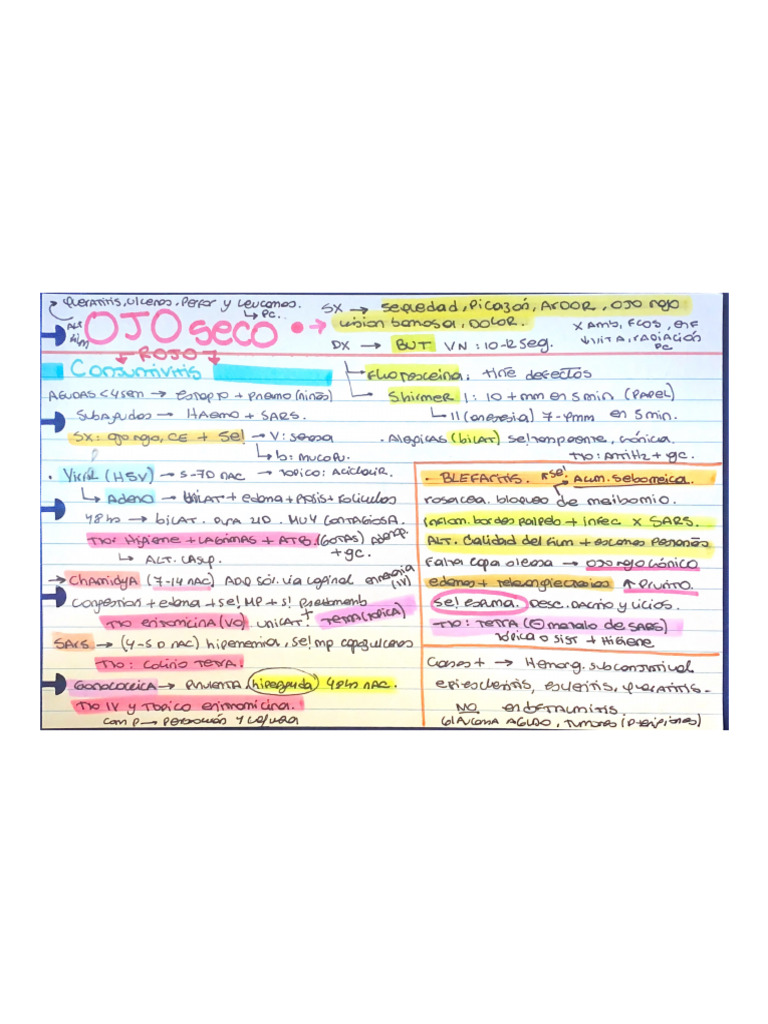 Queratitis, ulceras, perfor y leucomas.
↳ PC..
ALT film
OJO seco • →
SX → sequedad, picazón, ardor, ojo rojo
vision borrosa, dolor.
x Amb, FCOS, enf
↓ vita, radiación
PC
DX → BUT VN: 10-12 seg.
↓ ROJO ↓
Conjuntivitis
↳ Fluoresceina: tiñe defectos
↳ Shirmer I: 10 + mm en 5 min (PAPEL)
↳ II (anestesia) 7-9mm en 5 min.
AGUDAS < 4 sem → estafilo + pneumo (niños)
Subagudos → Haemo + SARS.
SX: ojo rojo, CE + se! → V: serosa
↳ b: mucopu.
• Atopicas (bilat) se! transparente, crónica
TTO: AntiHz + gc.
• Viral (HSV) → 5-7D nac → topico: aciclovir.
↳ Adeno → unilat + edema + ptosis + foliculos
48hs → bilat. dura 21D. MUY CONTAGIOSA.
TTO: Hygiene + LAGRIMAS + ATB. (GOTAS)
+ gc.
↳ ALT. CASP.
→ Chamidya (7-14 nac) ADQ
Congestion + edema + se! MP + s! Pseudomemb
TTO eritromicina (VO) unilat + TETRA (TOPICA)
SARS → (4-5D nac) hiperemia, se! mp
TTO: Colirio TETRA.
→ Gonococcica → PURULENTA, hiperaguda 48hs nac.
TTO IV y Topico eritromicina.
com P →
• BLEFARITIS. se! Acum. seborreica.
rosacea. bloqueo de meibomio.
inflam. bordes palpeb + infec x SARS.
ALT. Calidad del film + escamas pestañas
Falta capa oleosa → OJO rojo crónico
edemas + telangiectasias ↑ prurito.
se! espuma. Desc.
TTO: TETRA (⊖ manalo de SARS)
topica o sist + Higiene
Casos + → Hemorg. subconjuntival
epiescleritis, escleritis, queratitis.
NO endoftalmitis.
GLAUCOMA AGUDO, tumores